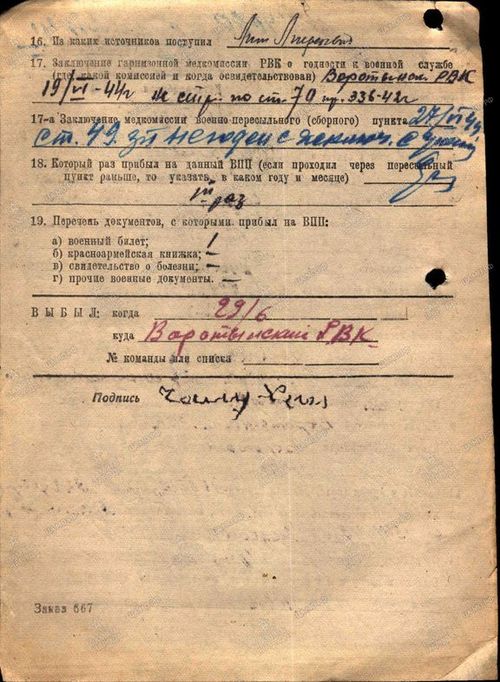 16. Из каких источников поступил
17. Заключение гарнизонной медкомиссии РВК о годности к военной службе
(где какой комиссией и когда освидетельствован) Воротынск. РВК
19/VI-44г не стр. по ст. 79 пр. 336-42г
17-а Заключение медкомиссии военно-пересыльного (сборного) пункта 27/VI 44
ст. 49. негоден с исключ. с
18. Который раз прибыл на данный ВПП (если проходил через пересыльный
пункт раньше, то указать, в каком году и месяце)
III раз
19. Перечень документов, с которыми прибыл на ВПП:
а) военный билет; 1
б) красноармейская книжка; —
в) свидетельство о болезни; —
г) прочие военные документы. —
ВЫБЫЛ: когда 29/6
куда Воротынский РВК
№ команды или списка
Подпись
Заказ 667